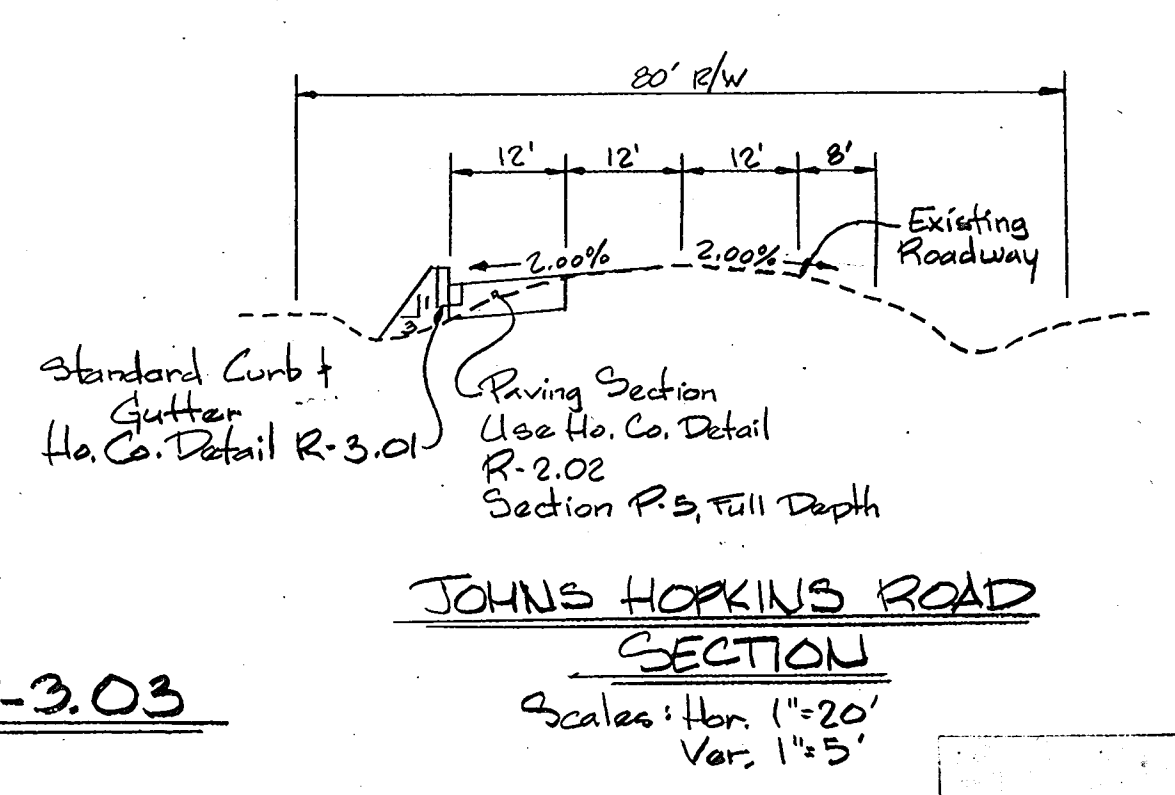 80' R/W
12' 12' 12' 8'
Existing
Roadway
2.00% 2.00%
1
3
Standard Curb +
Gutter
Ho. Co. Detail R-3.01
Paving Section
Use Ho. Co. Detail
R-2.02
Section P-5, Full Depth
JOHNS HOPKINS ROAD
SECTION
Scales: Hor. 1"=20'
Ver. 1"=5'
-3.03